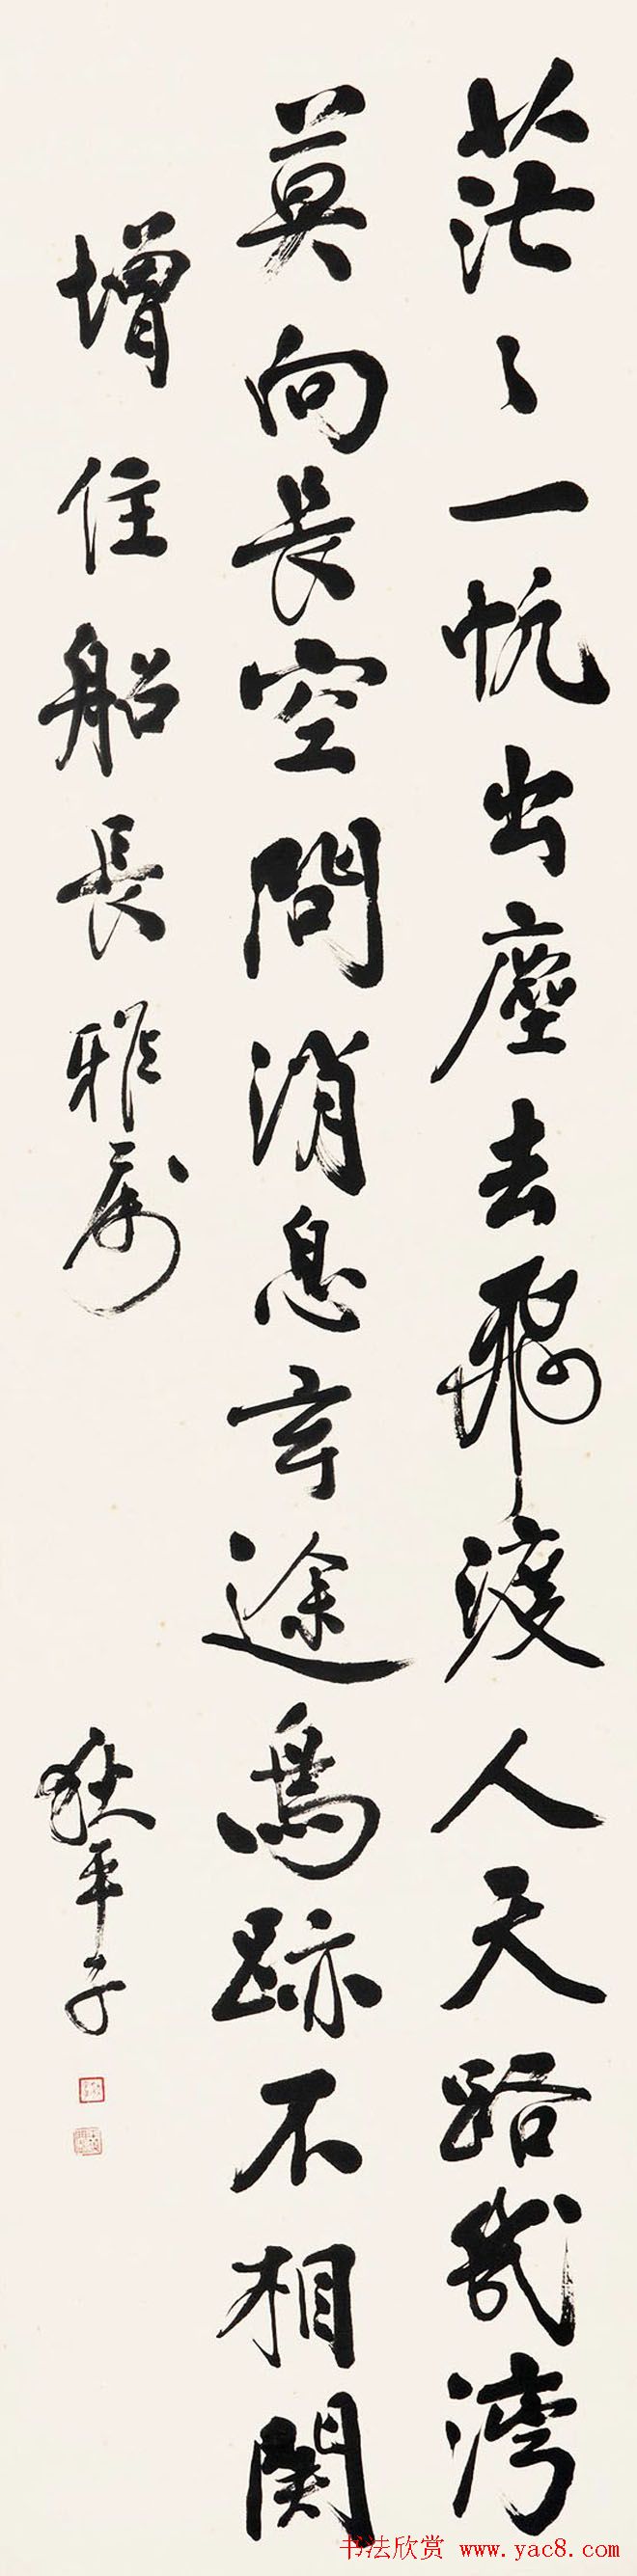 茫々一帆出塵去飛渡人天路幾灣
莫向長空問消息玄途鳥跡不相關
增住船長雅属
狄平子
书法欣赏 www.yac8.com